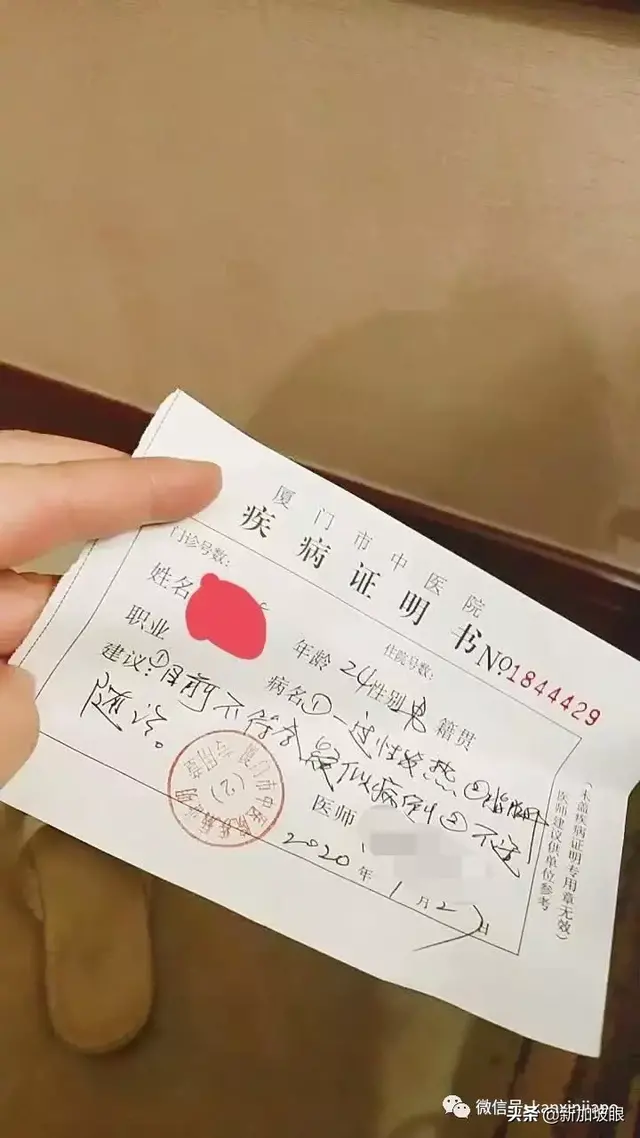 厦门市中医院
疾病证明书 No 1844429
门诊号数: 住院号数:
姓名 年龄 24 性别 男 籍贯
职业 病名 ①一过性发热 ②脂肪肝
建议: ①目前不符合疑似病例 ②不适
随诊。
医师
2020年1月27日
(未盖疾病证明专用章无效)
医师建议供单位参考
市中医院
(2)
专用章
微信号: kanxinjiapo
头条 @新加坡眼